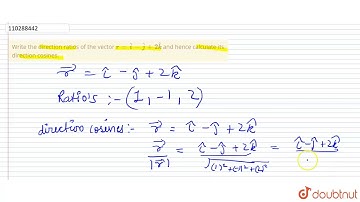 110288442
Write the direction ratios of the vector r = î - ĵ + 2k̂ and hence calculate its
direction cosines.
r⃗ = î - ĵ + 2k̂
Ratio's :- (1, -1, 2)
direction cosines:- r⃗ = î - ĵ + 2k̂
r⃗/|r⃗| = (î - ĵ + 2k̂)/√((1)²+(-1)²+(2)²) = î - ĵ + 2k̂
doubtnut